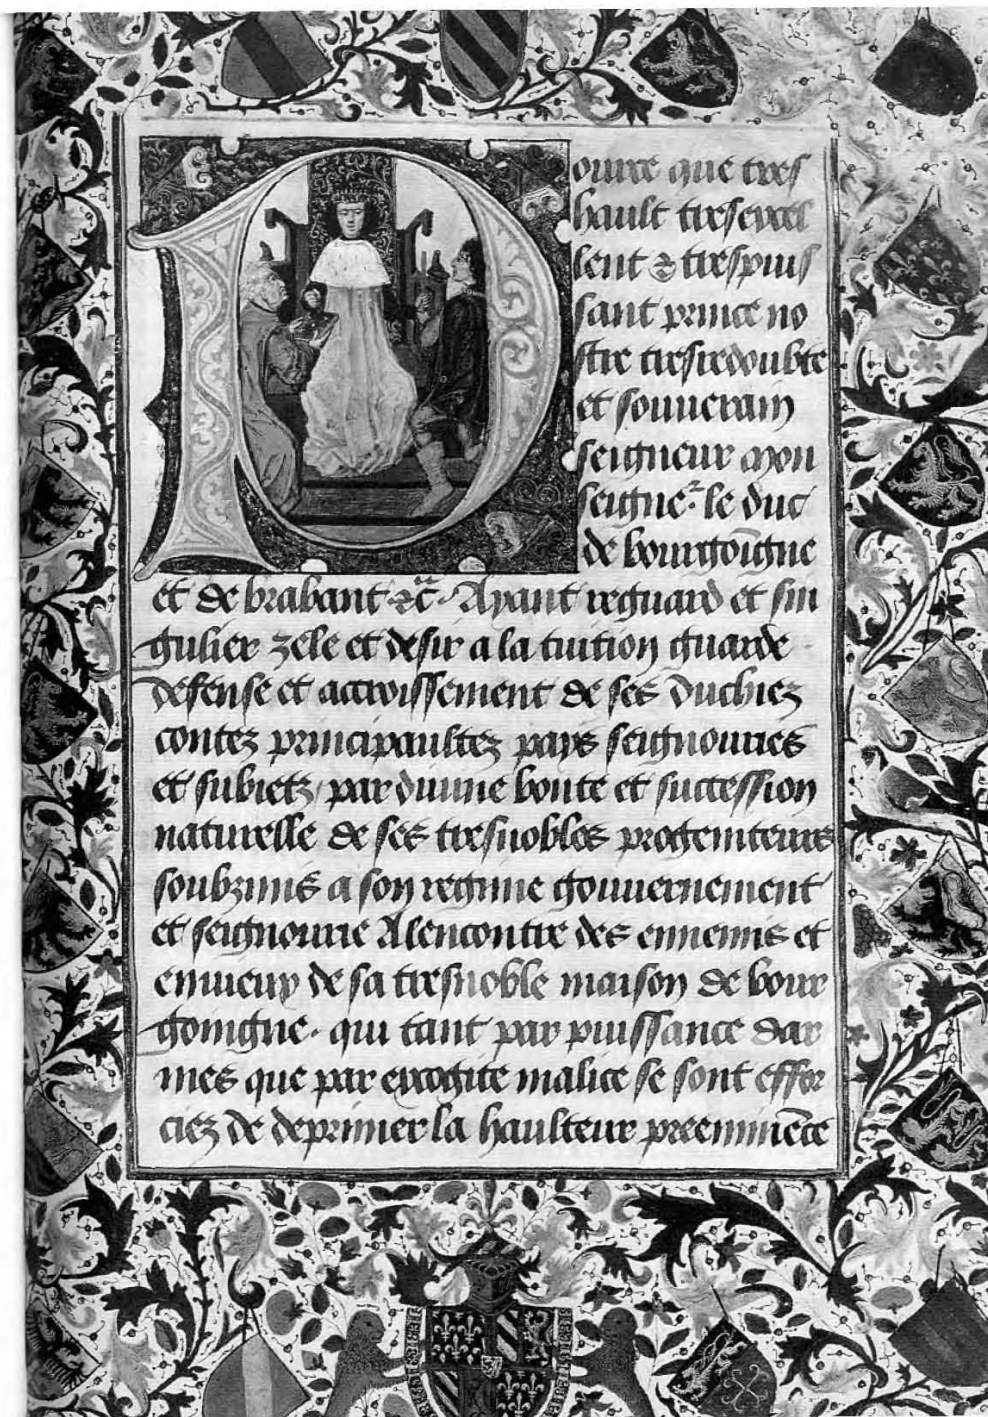 Pource que tres
hault tresexcel
lent & trespuis
sant prince no
stre tresredoubte
et souuerain
seigneur mon
seigneʳ le duc
de bourgōigne
et de brabant &c̃. Ayant reguard et sin
gulier zele et desir a la tuition guarde
defense et accroissement de ses duchiez
contez principaultez pays seignouries
et subietz, par diuine bonte et succession
naturelle de ses tresnobles progeniteurs
soubzmis a son regime gouuernement
et seignourie Alencontre des ennemis et
enuieux de sa tresnoble maison de bour
goingne. qui tant par puissance dar
mes que par excogite malice se sont effor
ciez de deprimer la haulteur preeminēce